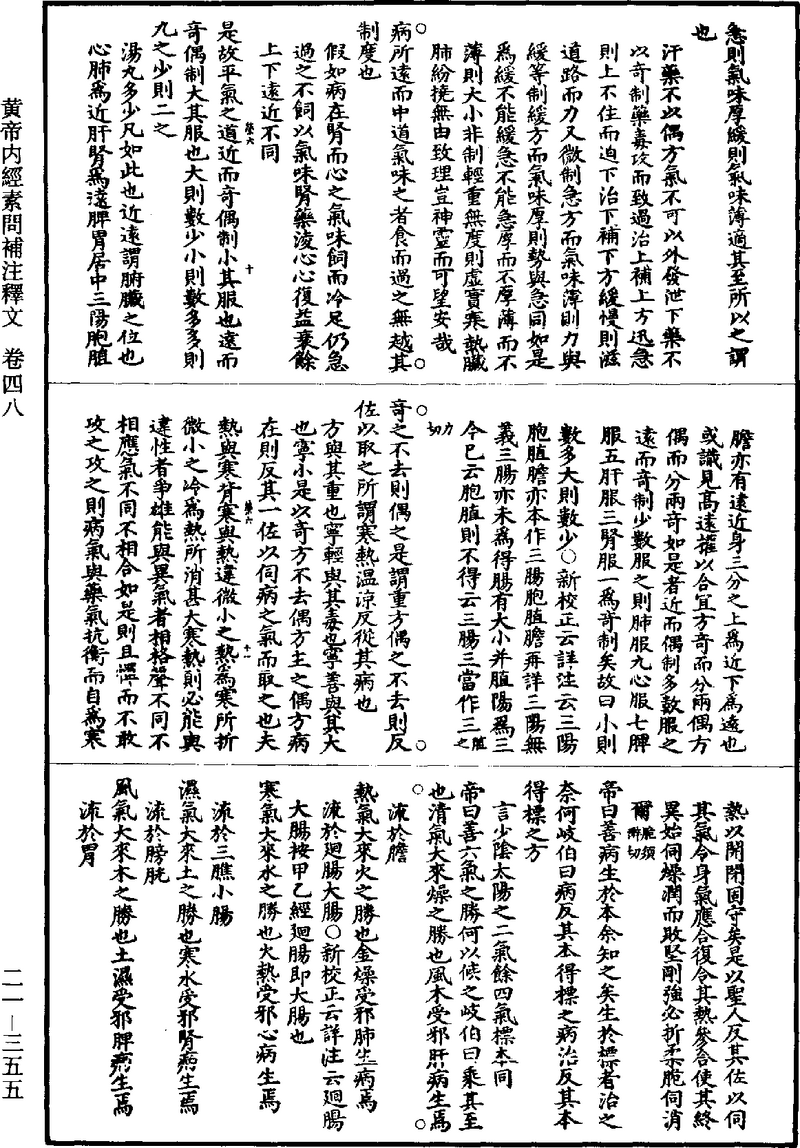 急則氣味厚緩則氣味薄適其至所以之謂
也
汗藥不以偶方氣不可以外發泄下藥不
以奇制藥毒攻而致過治上補上方迅急
則上不住而迫下治下補下方緩慢則滋
道路而力又微制急方而氣味薄則力與
緩等制緩方而氣味厚則勢與急同如是
為緩不能緩急不能急厚而不厚薄而不
薄則大小非制輕重無度則虛實寒熱臟
腑紛撓無由致理豈神靈而可望安哉
病所遠而中道氣味之者食而過之無越其
制度也
假如病在腎而心之氣味飼而冷足仍急
過之不飼以氣味腎藥淩心心復益衰餘
上下遠近不同
是故平氣之道近而奇偶制小其服也遠而
奇偶制大其服也大則數少小則數多多則
九之少則二之
湯丸多少凡如此也近遠謂腑臟之位也
心肺為近肝腎為遠脾胃居中三陽胞䐈
膽亦有遠近身三分之上為近下為遠也
或識見高遠權以合宜方奇而分兩偶方
偶而分兩奇如是者近而偶制多數服之
遠而奇制少數服之則肺服九心服七脾
服五肝服三腎服一為奇制矣故曰小則
數多大則數少○新校正云詳注云三陽
胞䐈膽亦本作三腸胞䐈膽再詳三陽無
義三腸亦未為得腸有大小并䐈腸為三
今已云胞䐈則不得云三腸三當作三䐈之
力切
奇之不去則偶之是謂重方偶之不去則反
佐以取之所謂寒熱溫涼反從其病也
方與其重也寧輕與其毒也寧善與其大
也寧小是以奇方不去偶方主之偶方病
在則反其一佐以伺病之氣而取之也夫
熱與寒背寒與熱違微小之熱為寒所折
微小之冷為熱所消甚大寒熱則必能與
違性者爭雄能與異氣者相格聲不同不
相應氣不同不相合如是則且憚而不敢
攻之攻之則病氣與藥氣抗衡而自為寒
熱以開閉固守矣是以聖人反其佐以同
其氣令身氣應合復令其熱參合使其終
異始同燥潤而敗堅剛強必折柔脆同消
爾脆須醉切
帝曰善病生於本余知之矣生於標者治之
奈何岐伯曰病反其本得標之病治反其本
得標之方
言少陰太陽之二氣餘四氣標本同
帝曰善六氣之勝何以候之岐伯曰乘其至
也清氣大來燥之勝也風木受邪肝病生焉
流於膽
熱氣大來火之勝也金燥受邪肺生病焉
流於迴腸大腸○新校正云詳注云迴腸
大腸按甲乙經迴腸即大腸也
寒氣大來水之勝也火熱受邪心病生焉
流於三瞧小腸
濕氣大來土之勝也寒水受邪腎病生焉
流於膀胱
風氣大來木之勝也土濕受邪脾病生焉
流於胃
黄帝内經素問補注釋文 卷四八
二一—三五五